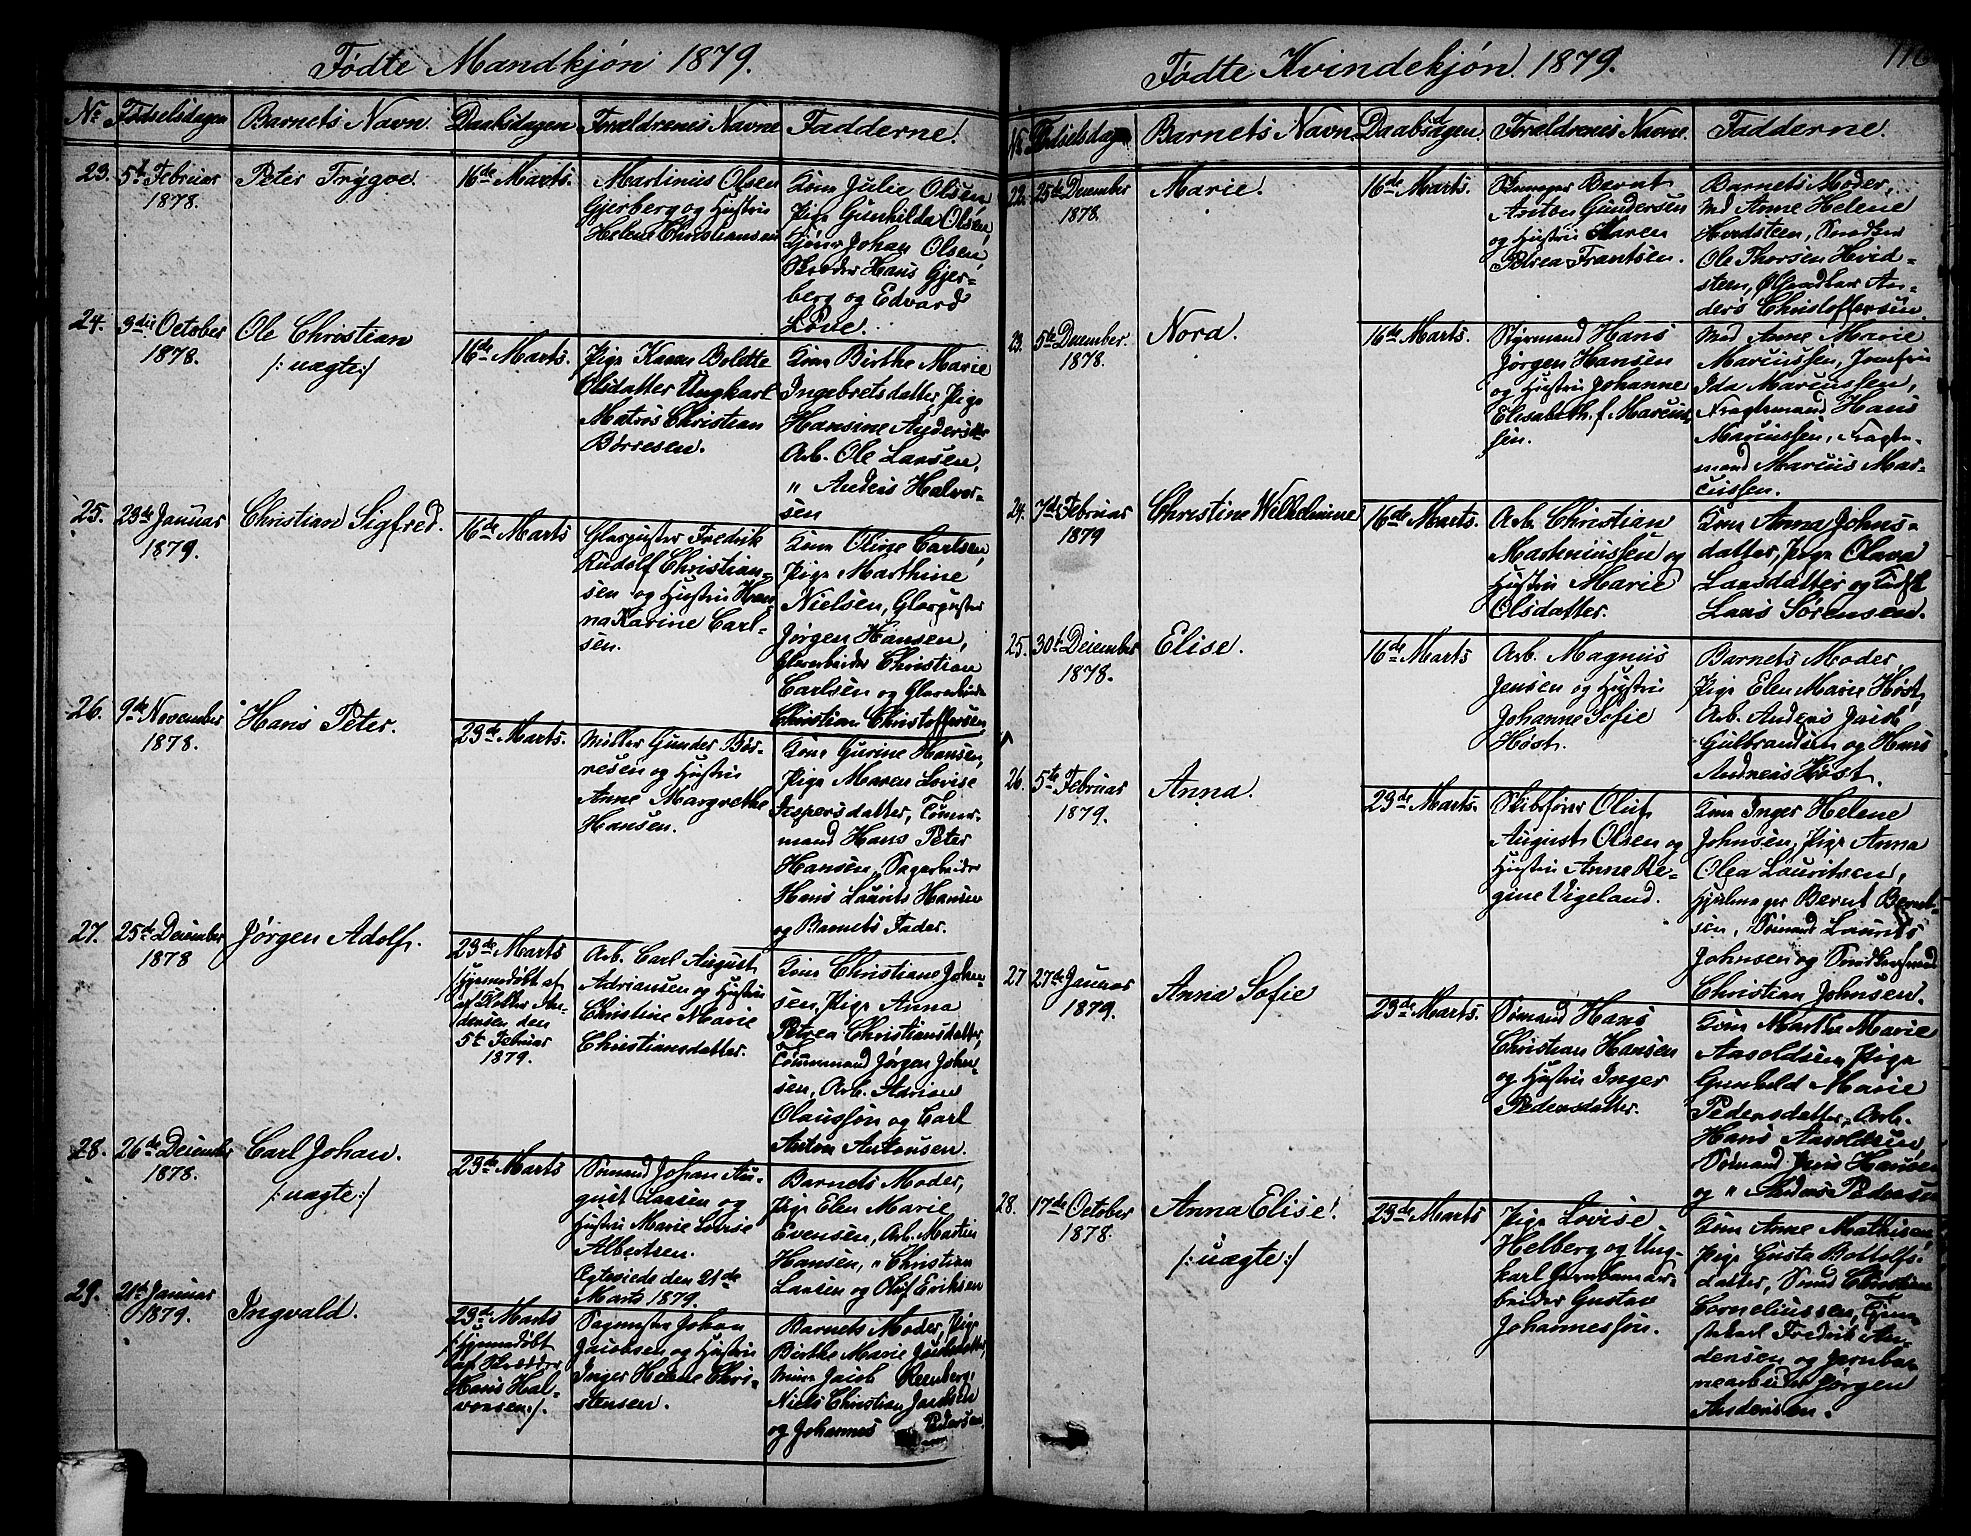 Fødte Mandkjøn 1879.
No Fødselsdagen Barnets Navn. Daabsdagen Forældrenes Navne Fadderne.
23. 5te Februar 1878. Peter Trygve. 16de Marts.
Martinus Olsen
Gjerberg og Hustru
Helene Christiansen
Kone Julie Olsen,
Pige Gunhilda Olsen,
Johan Olsen,
Skræder Hans Gjer-
berg og Edvard
Løve.
24. 3die October 1878. Ole Christian
/: uægte :/
16de Marts.
Pige Karen Bolette
Olsdatter Ungkarl
Matros Christian
Børresen.
Kone Birthe Marie
Ingebretsdatter, Pige
Hansine Andersdtr
Arb. Ole Larsen,
" Anders Halvor-
sen
25. 23de Januar 1879. Christian Sigfred. 16de Marts
Glaspuster Fredrik
Rudolf Christian-
sen og Hustru Han-
na Karine Carl-
sen.
Kone Oline Carlsen,
Pige Marthine
Nielsen, Glaspuster
Jørgen Hansen,
Glasarbeider Christian
Carlsen og Glasarbeider
Christian Christoffersen.
26. 9de November 1878. Hans Peter. 23de Marts.
Møller Gunder Bør-
resen og Hustru
Anne Margrethe
Hansen.
Kone Gurine Hansen,
Pige Maren Lovise
Jespersdatter, Tømmer-
mand Hans Peter
Hansen, Sagarbeider
Hans Laurits Hansen
og Barnets Fader.
27. 25de December 1878 Jørgen Adolf. 23de Marts
/:hjemmedøbt af
af Holter An-
dersen den
5te Februar
1879.
Arb. Carl August
Adriansen og Hustru
Christine Marie
Christiansdatter.
Kone Christiane Johan-
sen, Pige Anna
Petrea Christiansdatter,
Tømmermand Jørgen Johan-
sen, Arb. Adrian
Olaussøn og Carl
Anton Antonsen.
28. 26de December 1878. Carl Johan.
/: uægte :/
23de Marts
Sømand Johan Au-
gust Larsen og
Hustru Marie Lovise
Albertsen.
Ægteviede den 21de
Marts 1879.
Barnets Moder,
Pige Elen Marie
Evensen, Arb. Martin
Hansen, " Christian
Larsen og Oluf Eriksen
29. 21de Januar 1879. Ingvald. 23de Marts
/:hjemmedøbt
af Skrædder
Hans Hal-
vorsen:/.
Sagmester Johan
Jacobsen og Hustru
Inger Helene Chri-
stensen.
Barnets Moder, Pige
Birthe Marie Jacobsdatter,
Murer Jacob Reenberg,
Niels Christian Jacobsen
og Johannes Pedersen.
Fødte Kvindekjøn. 1879.
No Fødselsdagen Barnets Navn. Daabsdagen. Forældrenes Navne. Fadderne.
22. 25de December 1878. Marie. 16de Marts.
Bernt
Anton Gundersen
og Hustru Maren
Petrea Frantsen.
Barnets Moder,
Md Anne Helene
Hvidsteen, Snedker
Ole Thorsen Hvid-
steen, An-
ders Christoffersen.
23. 5te December. 1878. Nora. 16de Marts.
Styrmand Hans
Jørgen Hansen
og Hustru Johanne
Elisabeth f. Marcus-
sen.
Md Anne Marie
Marcussen, Jomfru
Ida Marcussen,
Fragtemand Hans
Marcussen, Fragte-
mand Marcus Mar-
cussen.
24. 7de Februar 1879 Christine Wilhelmine 16de Marts.
Arb. Christian
Martiniussen og
Hustru Marie
Olsdatter.
Kone Anna Johns-
datter, Pige Olava
Larsdatter og
Lars Sørensen.
25. 30te December 1878. Elise. 16de Marts
Arb. Magnus
Jensen og Hustru
Johanne Sofie
Høst.
Barnets Moder,
Pige Elen Marie Høst,
Arb. Anders Jacob
Gulbrandsen og Hans
Andreas Høst.
26. 5te Februar 1879. Anna. 23de Marts.
Skibsfører Oluf
August Olsen og
Hustru Anne Re-
gine Vigeland.
Kone Inger Helene
Johnsen, Pige Anna
Olea Lauritsen,
Hjulmager Bernt Bernt-
sen, Sømand Laurits
Johnsen og
Christian Johnsen.
27 27de Januar 1879. Anna Sofie 23de Marts.
Sømand Hans
Christian Hansen
og Hustru Inger
Pedersdatter.
Kone Marthe Marie
Aasoldsen, Pige
Gunhild Marie
Pedersdatter, Arb.
Hans Aasoldsen,
Sømand Jens Hansen
og " Anders Pedersen
28. 17de October 1878. Anna Elise!
/: uægte :/
23de Marts
Pige Lovise
Helberg og Ung-
karl Jernbanear-
beider Gustav
Johannessøn.
Kone Anne Mathisen,
Pige Gusta Bottolfs-
datter, Smed Christian
Corneliussen, Tjene-
stekarl Fredrik An-
dersen og Jernba-
nearbeider Jørgen
Andersen.